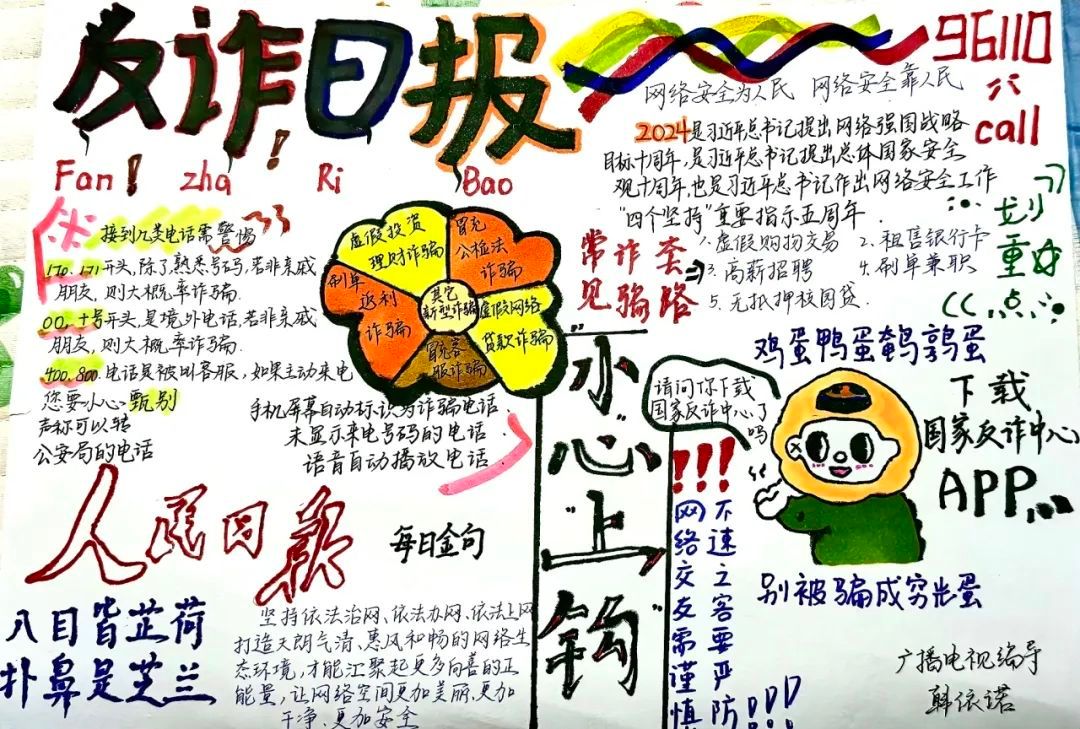 反诈日报
Fan zha Ri Bao
96110
call
网络安全为人民 网络安全靠人民
2024是习近平总书记提出网络强国战略
目标十周年,是习近平总书记提出总体国家安全
观十周年,也是习近平总书记作出网络安全工作
"四个坚持"重要指示五周年.
划重点
接到九类电话需警惕
170.171开头,除了熟悉号码,若非亲戚
朋友,则大概率诈骗.
00.十号开头,是境外电话,若非亲戚
朋友,则大概率诈骗.
400.800.电话是被叫客服,如果主动来电
您要小心甄别
声称可以转
公安局的电话
手机屏幕自动标识为诈骗电话.
未显示来电号码的电话.
语音自动播放电话
虚假投资
理财诈骗
冒充
公检法
诈骗
刷单
返利
诈骗
其它
新型诈骗
虚假网络
贷款诈骗
冒充客
服诈骗
常见诈骗套路
1.虚假购物交易 2.租售银行卡
3.高薪招聘 4.刷单兼职
5.无抵押校园贷.
"小"心"上"钩"
鸡蛋鸭蛋鹌鹑蛋
请问你下载
国家反诈中心了
吗
下载
国家反诈中心
APP
别被骗成穷光蛋
!!!
不速之客要严防!!!
网络交友需谨慎
人民日报
每日金句
八目皆芷荷
扑鼻是芝兰
坚持依法治网、依法办网、依法上网
打造天朗气清、惠风和畅的网络生
态环境,才能汇聚起更多向善的正
能量,让网络空间更加美丽、更加
干净、更加安全
广播电视编导
韩依诺